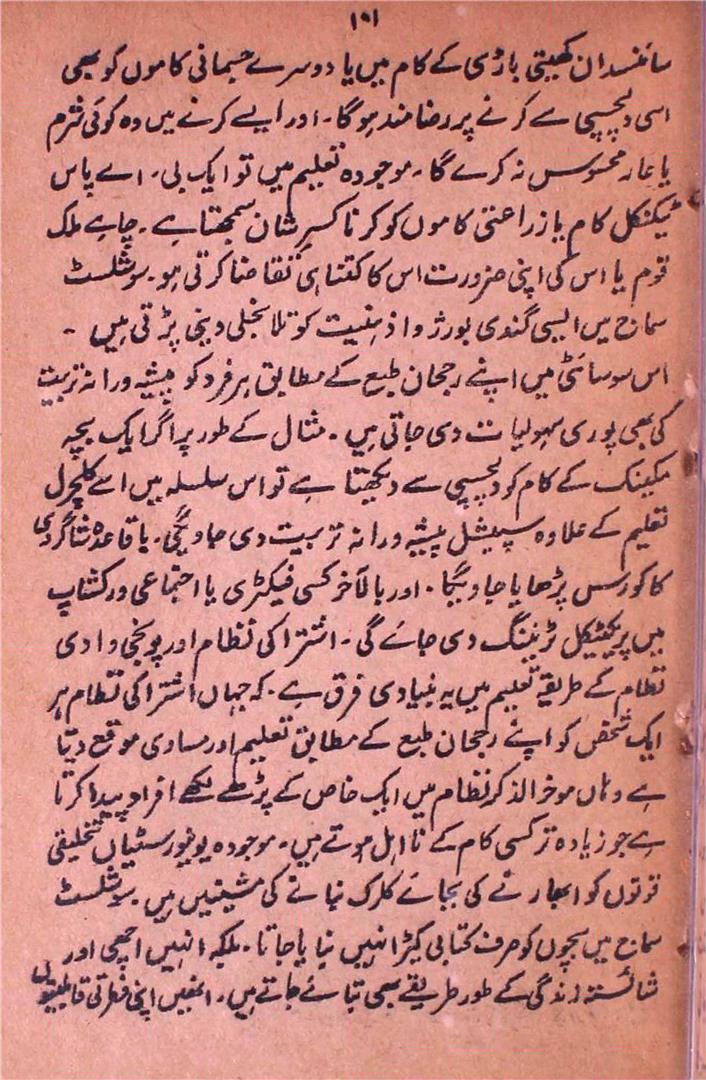 ۱۰۱
سائنسدان کھیتی باڑی کے کام میں یا دوسرے جسمانی کاموں کو بھی
اسی دلچسپی سے کرنے پر رضامند ہوگا۔ اور ایسے کرنے میں وہ کوئی شرم
یا عار محسوس نہ کرے گا۔ موجودہ تعلیم میں تو ایک بی۔ اے پاس
ٹیکنکل کام یا زراعتی کاموں کو کرنا کسرِ شان سمجھتا ہے۔ چاہے ملک
قوم یا اس کی اپنی ضرورت اس کا کتنا ہی تقاضا کرتی ہو۔ سوشلسٹ
سماج میں ایسی گندی بورژوا ذہنیت کو تلانجلی دینی پڑتی ہیں ۔
اس سوسائٹی میں اپنے رجحان طبع کے مطابق ہر فرد کو پیشہ ورانہ تربیت
کی بھی پوری سہولیات دی جاتی ہیں ۔ مثال کے طور پر اگر ایک بچہ
مکینک کے کام کو دلچسپی سے دیکھتا ہے تو اس سلسلہ میں اسے کلچرل
تعلیم کے علاوہ سپیشل پیشہ ورانہ تربیت دی جاویگی۔ باقاعدہ شاگردی
کا کورس پڑھایا جاویگا ۔ اور بالآخر کسی فیکٹری یا اجتماعی ورکشاپ
میں پریکٹیکل ٹریننگ دی جائے گی ۔ اشتراکی نظام اور پونجی وادی
نظام کے طریقے تعلیم میں یہ بنیادی فرق ہے ۔ کہ جہاں اشتراکی نظام ہر
ایک شخص کو اپنے رجحان طبع کے مطابق تعلیم اور مساوی موقع دیتا
ہے وہاں موخرالذکر نظام میں ایک خاص کے پڑھے لکھے افراد پیدا کرتا
ہے جو زیادہ تر کسی کام کے نا اہل ہوتے ہیں ۔ موجودہ یونیورسٹیاں تخلیقی
قوتوں کو ابھارنے کی بجائے کلرک بنانے کی مشینیں ہیں ۔ سوشلسٹ
سماج میں بچوں کو صرف کتابی کیڑا نہیں بنایا جاتا ۔ بلکہ انہیں اچھی اور
شائستہ زندگی کے طور طریقے بھی بتائے جاتے ہیں ۔ انھیں اپنی فطرتی قابلیتوں